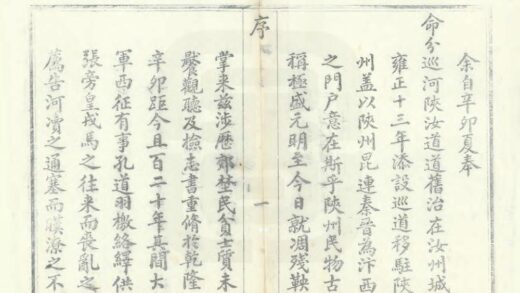 余自辛卯夏奉
命分巡河陝汝道道舊治在汝州城
雍正十三年添設巡道移駐陝
州盖以陝州昆連秦晉為汴西
之門户意在斯乎陝州民物古
稱極盛元明至今日就凋殘鞅
序
一
掌来兹涉歷郊埜民負士質未
饜觀聽及檢志書重脩於乾隆
辛卯距今且百二十年其間大
軍西征有事孔道羽檄絡繹供
張旁皇戎馬之往来而喪亂之
薦告河瀆之通塞而積潦之不